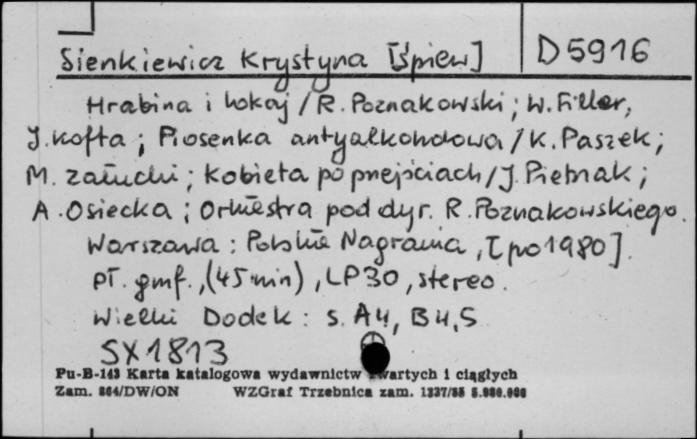 Sienkiewicz Krystyna [śpiew] D5916
Hrabina i lokaj / R. Poznakowski ; W. Filler,
J. Kofta ; Piosenka antyalkoholowa / K. Paszek ;
M. Załucki ; Kobieta po przejściach / J. Pietrzak ;
A. Osiecka ; Orkiestra pod dyr. R. Poznakowskiego.
Warszawa : Polskie Nagrania, [po 1980].
pł. gmf., (45 min), LP30, stereo.
Wielki Dodek : s. A4, B4,5
SX1813
Pu-B-143 Karta katalogowa wydawnictw zwartych i ciągłych
Zam. 864/DW/ON WZGraf Trzebnica zam. 1337/85 5.000.000